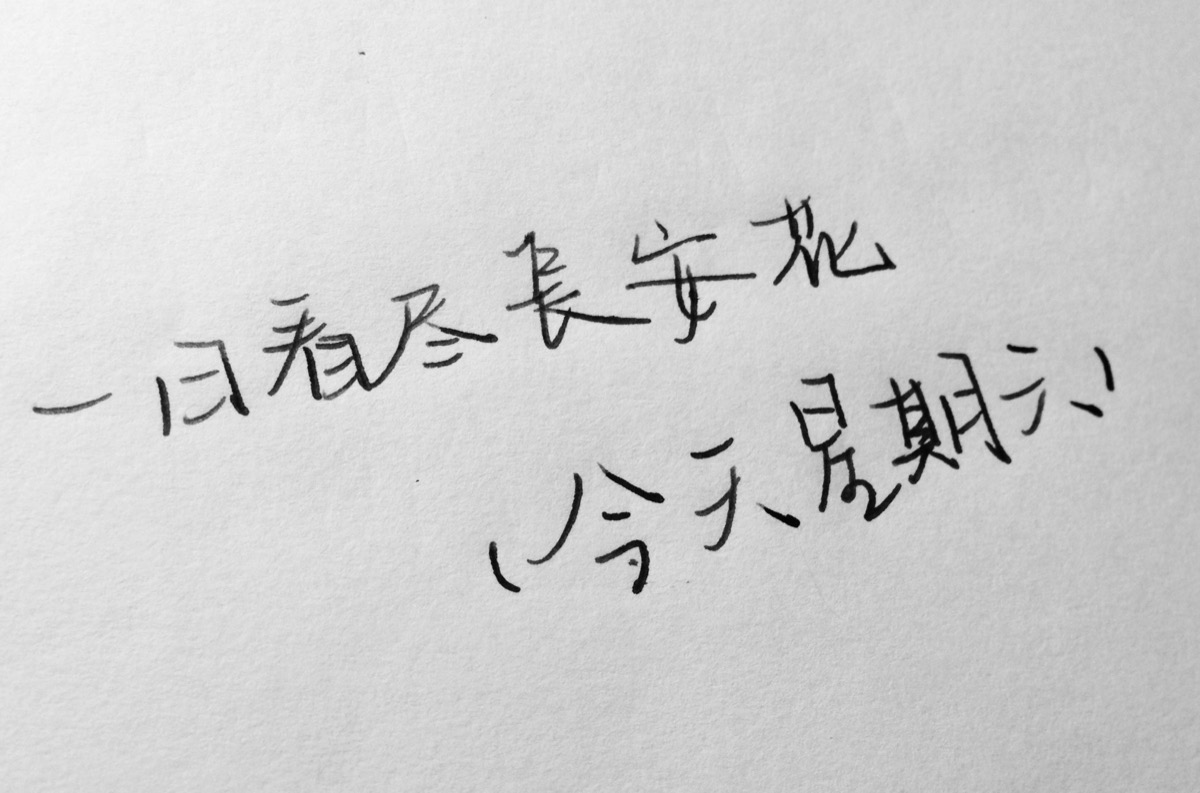 一日看尽長安花
(今天星期六)